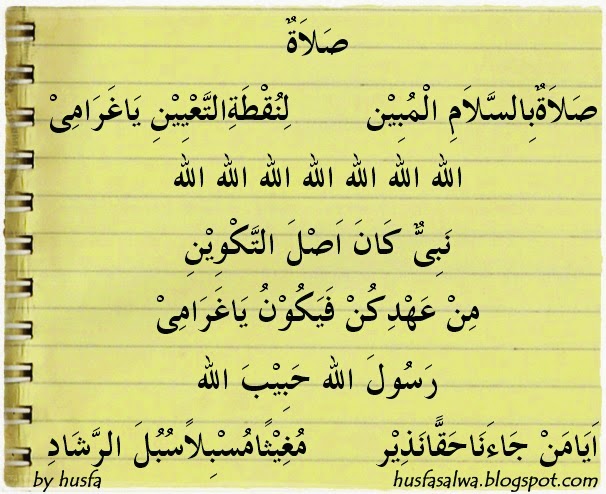 صَلاَةٌ
صَلاَةٌبِالسَّلاَمِ الْمُبِيْن لِنُقْطَةِالتَّعْيِيْنِ يَاغَرَامِىْ
الله الله الله الله الله الله الله
نَبِىٌّ كَانَ اَصْلَ التَّكْوِيْنِ
مِنْ عَهْدِكُنْ فَيَكُوْنُ يَاغَرَامِىْ
رَسُولَ الله حَبِيْبَ الله
اَيَامَنْ جَاءَنَاحَقًّانَذِيْر مُغِيْثًامُسْبِلاًسُبُلَ الرَّشَادِ
by husfa husfasalwa.blogspot.com